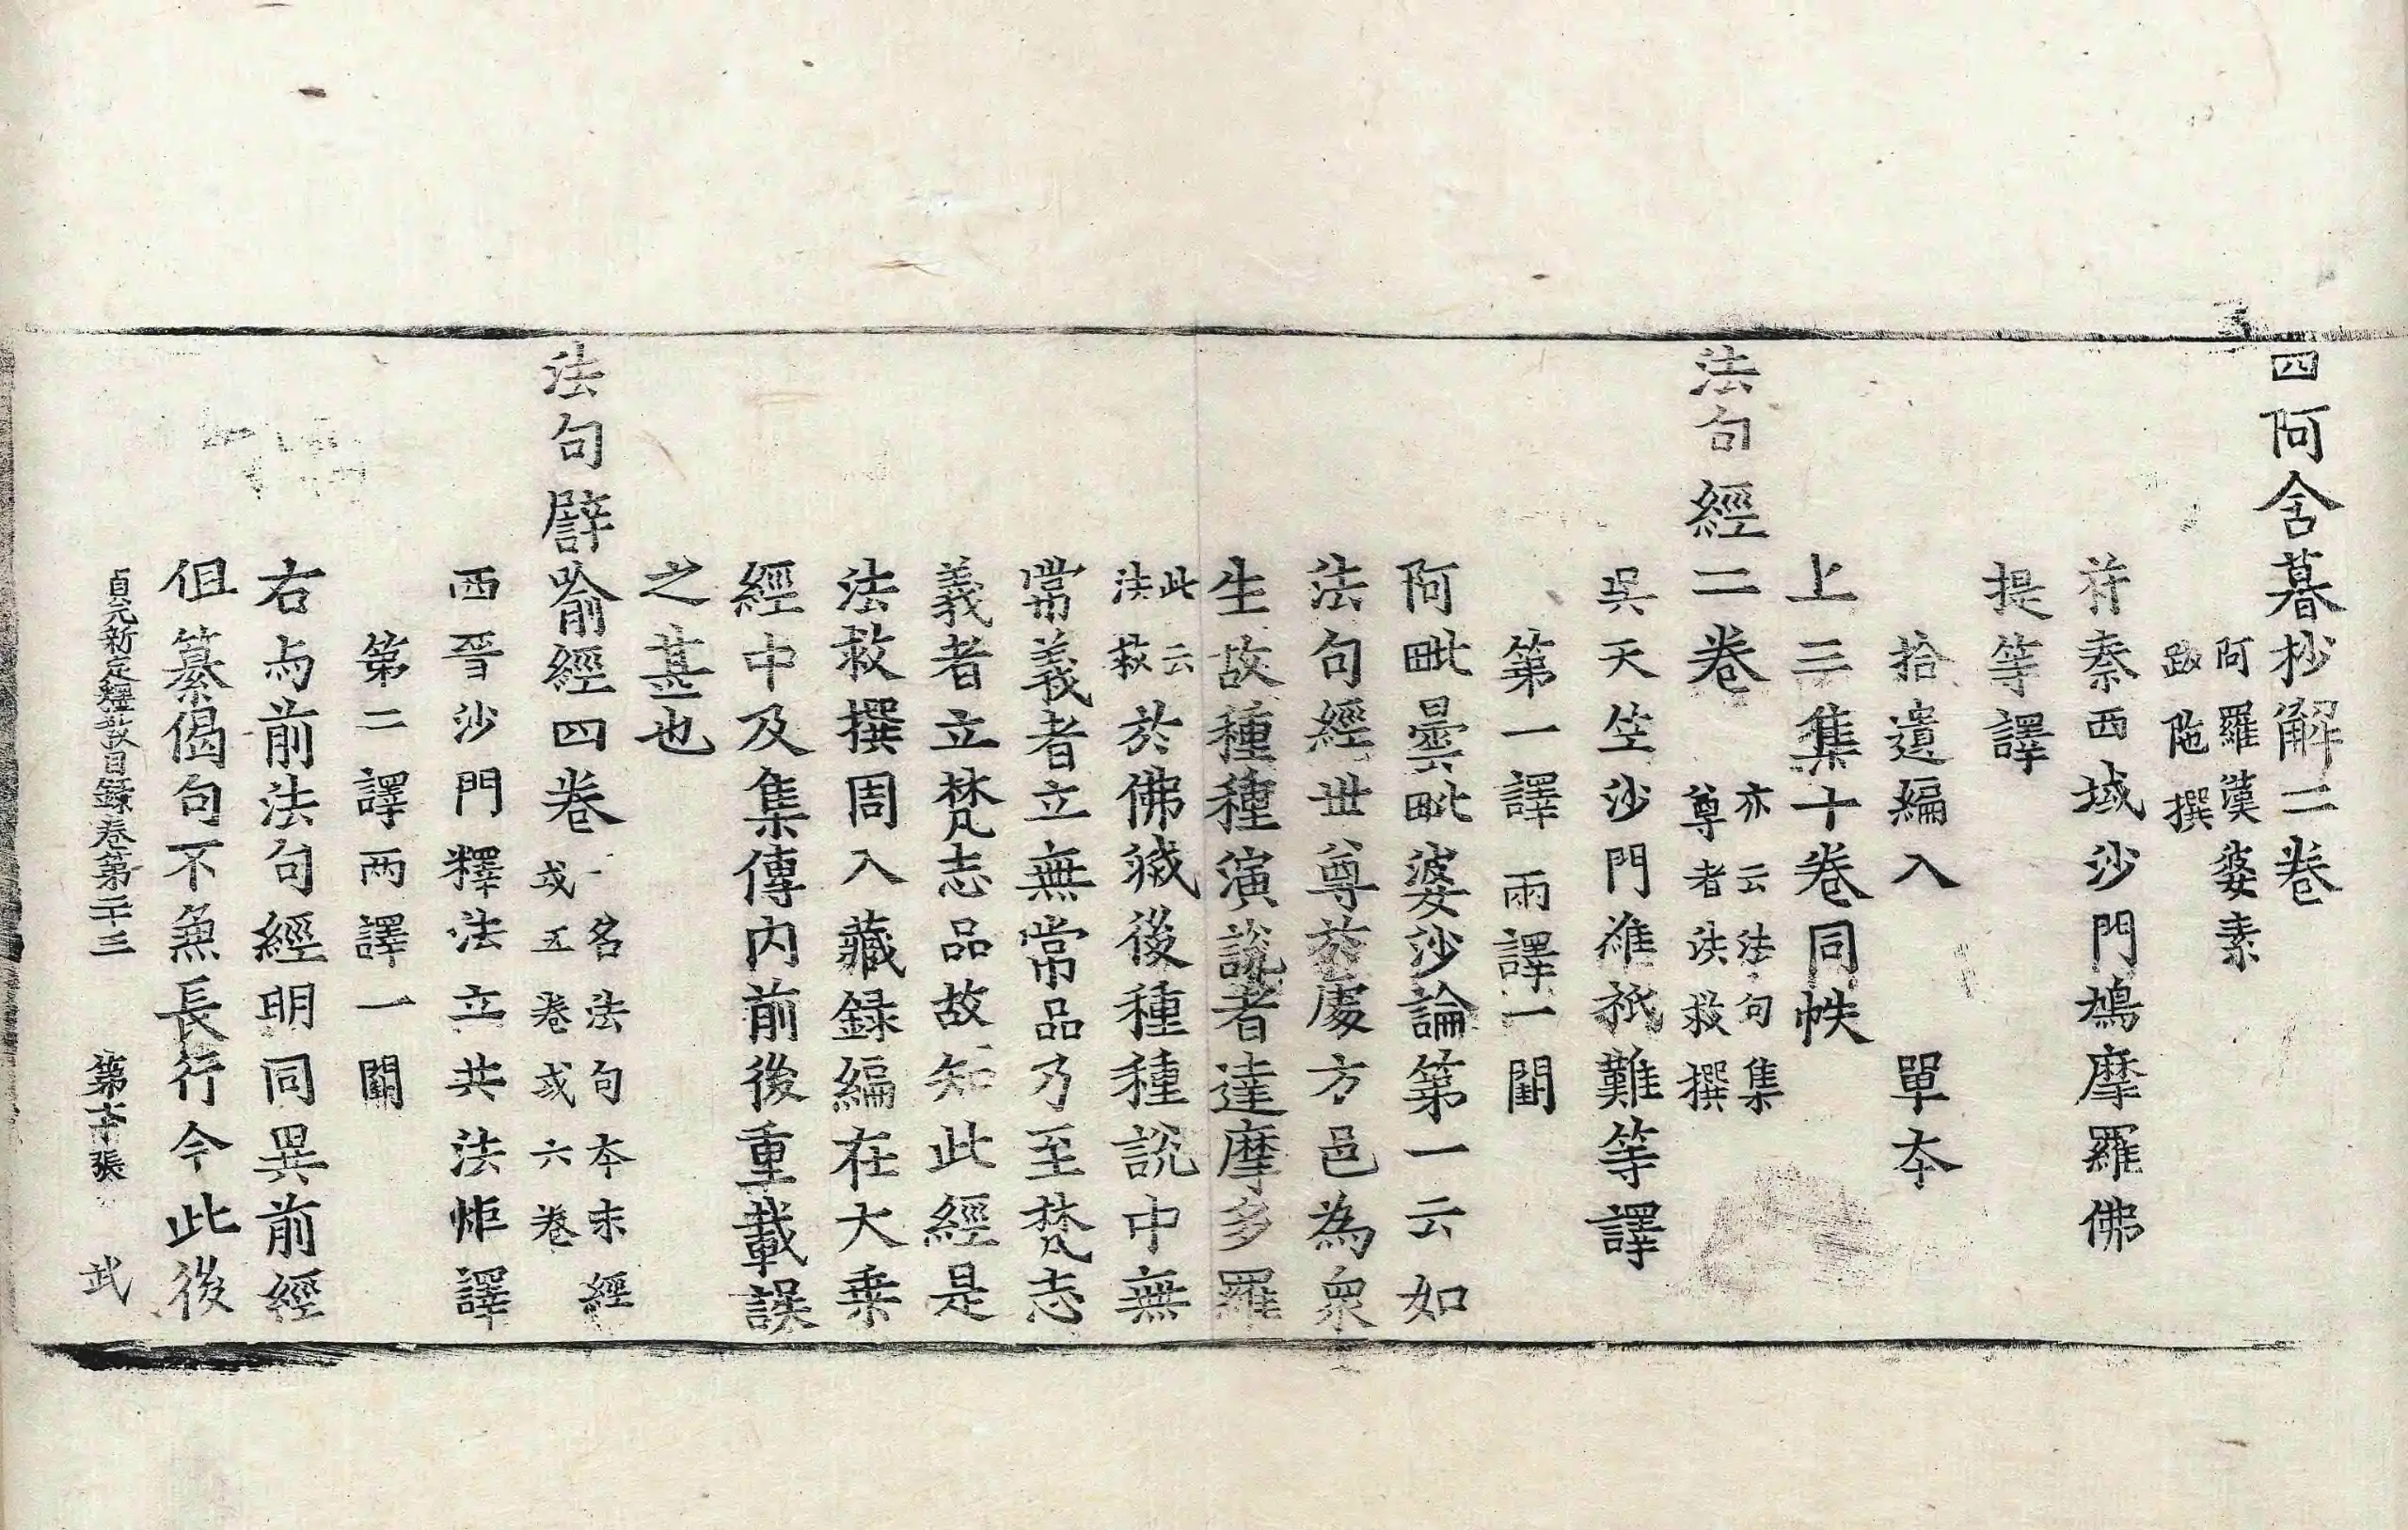 四阿含暮抄解二卷
阿羅漢婆素
跋陁撰
苻秦西域沙門鳩摩羅佛
提等譯
拾遺編入　單本
上三集十卷同帙
法句經二卷
亦云法句集
尊者法救撰
吳天竺沙門維祇難等譯
第一譯　兩譯一闕
阿毗曇毗婆沙論第一云如
法句經世尊於處方邑為衆
生故種種演說者達摩多羅
此云
法救
於佛滅後種種說中無
常義者立無常品乃至梵志
義者立梵志品故知此經是
法救撰周入藏録編在大乗
經中及集傳内前後重載誤
之甚也
法句譬喻經四卷
一名法句本末經
或五卷或六卷
西晉沙門釋法立共法炬譯
第二譯兩譯一闕
右与前法句經明同異前經
但纂偈句不兼長行今此後
貞元新定釋教目録卷第二十三　第十張　武